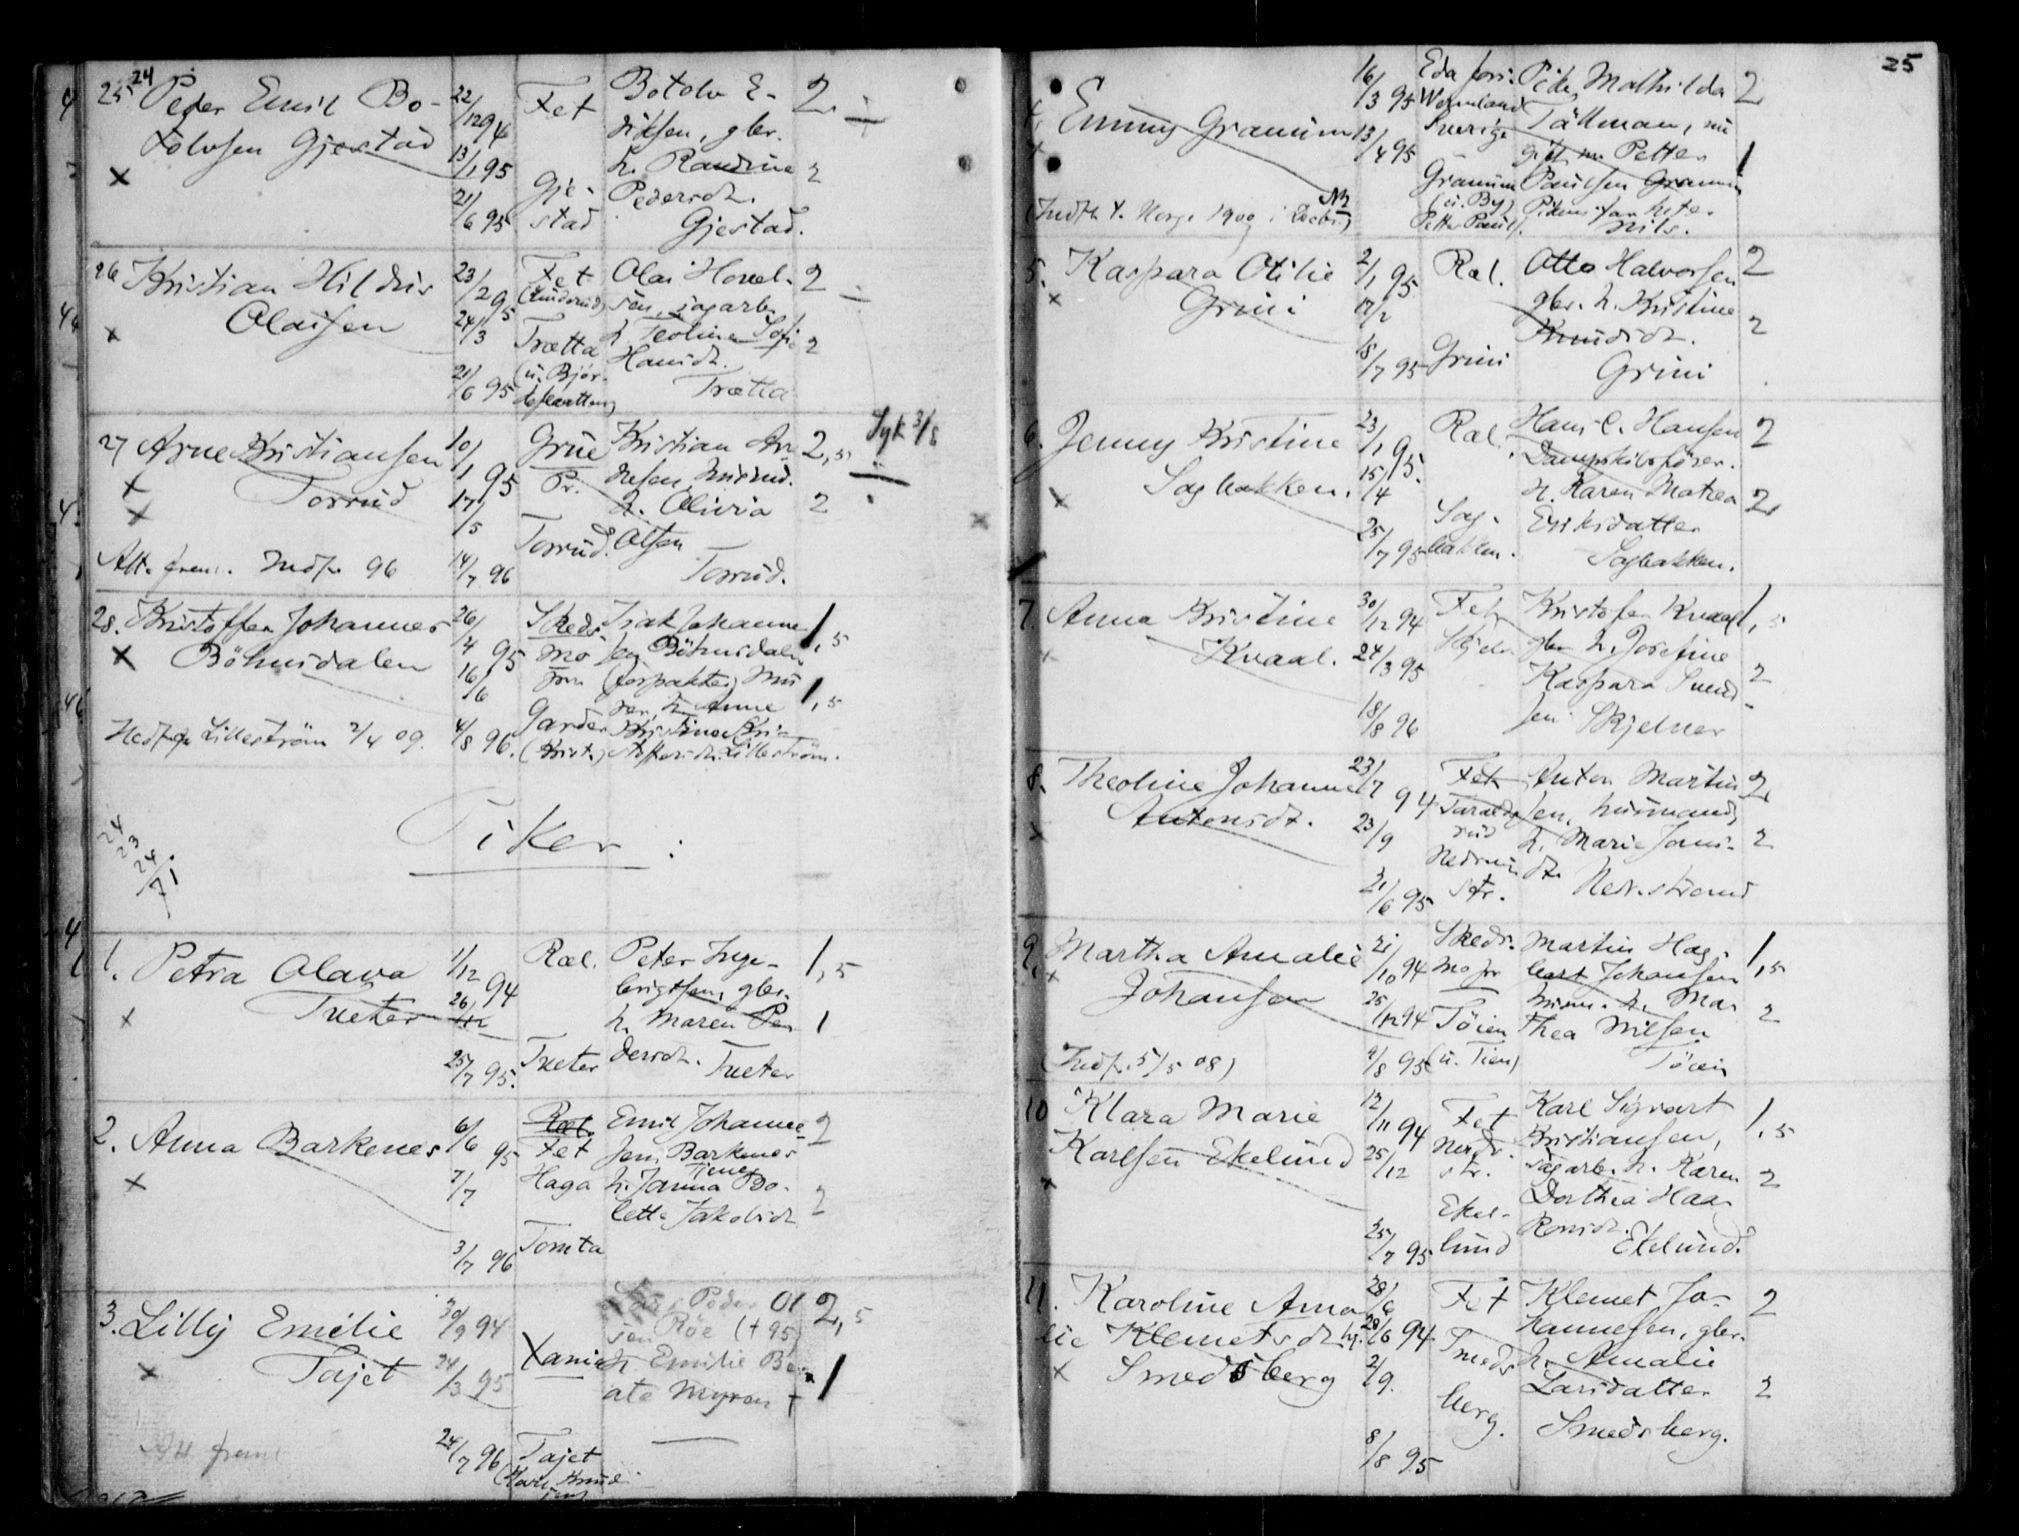 24
25 Peder Emil Bo-
tolvsen Gjestad
x
22/12 94
13/1 95
21/6 95
Fet
Gje-
stad
Botolv E-
riksen, gbr.
h. Randine
Pedersdt.
Gjestad.
2
2
26 Kristian Hildus
Olaisen
x
23/2 95
24/3
21/6 95
Fet
Trætta
Olai Hovel-
sen, sagarb.
h. Teoline Sofie
Hansdt.
Trætta
2
2
27 Arne Kristiansen
Torrud
x
x
Att. frem. Indfr. 96
10/1 95
17/5
14/7 96
Grue
Pr.
Torrud.
Kristian Ar-
nesen, husmd.
h. Olivia
Olsen
Torrud.
2,5
2
Syk 3/8
28. Kristoffer Johannes
x Böhnsdalen
Lilleström 2/4 09.
26/4 95
16/6
4/8 96.
Skeds-
mo
Garder
Isak Johanne-
sen Böhnsdalen
(forpakter) Mu-
rer, h. Anne
Kristine Kri-
stoffersdt. Lilleström.
1,5
1,5
Piker :
24
23
24
71
1. Petra Olava
Tueter
x
1/12 94
26/12
25/7 95.
Ræl.
Tueter
Peter Inge-
brigtsen, gbr.
h. Maren Pe-
dersdt. Tueter
1,5
1
2. Anna Barkenes
x
6/6 95
7/7
3/7 96
Ræl.
Fet
Haga
Tomta
Emil Johanne-
sen Barkenes
Tjener
h. Janna Bo-
lette Jakobsdt
2
2
3. Lilly Emilie
Tajet
x
Att frem
30/9 94
24/3 95
24/7 96
Xania
Tajet
Peder Ol
sen Röe (+95)
h. Emilie Be-
ate Myren +
2,5
1
25
4. Emmy Granum
x
16/3 95
13/4 95
Eda fors.
Wermland
Sverige
Granum
(u. By)
Petter Pauls.
Pike Mathilda
Tällman, nu
gift m. Petter
Paulsen Granum
Pikens far heter
Nils.
2
1
5. Kaspara Otilie
x Grini
2/1 95
17/2
18/7 95
Ræl.
Grini
Otto Halvorsen
gbr. h. Kristine
Knudsdt.
Grini
2
2
6. Jenny Kristine
Sagbakken.
x
23/1 95.
15/4
25/7 95
Ræl.
Sag-
bakken.
Hans C. Hansen
Dampskibsförer.
h. Karen Matea
Eriksdatter
Sagbakken.
2
2
7. Anna Kristine
Kvaal.
x
30/12 94
24/3 95
18/8 96
Fet
Kristofer Kvaal
gbr h. Josefine
Kaspara Svend-
sen Skjelner
1,5
2
8. Theoline Johanne
Antonsdt.
x
23/7 94
23/9
21/6 95
Fet
Tarald
rud
Nedrun
str.
Anton Martin
sen, husmand,
h. Marie Jons-
dt.
Nedr. strand
2
2
9. Martha Amalie
x Johansen
(Indfr. 5/5 08)
21/10 94
25/12 94
9/8 95
Skeds-
mo fr
Töien
(u. Tien)
Martin Hag-
bart Johansen
husm. h. Ma-
thea Nilsen
Töien
1,5
2
10 Klara Marie
Karlsen Ekelund
x
12/11 94
25/12
25/7 95
Fet
Nedr.
str.
Eke-
lund
Karl Sigvart
Kristiansen,
sagarb. h. Karen
Dorthea Haa-
konsdt.
Ekelund.
1,5
2
11. Karoline Ama-
lie Klemetsdt
x Smedsberg
28/6 94
2/9.
8/8 95
Fet
Smeds
berg.
Klemet Jo-
hannesen, gbr.
h. Amalie
Larsdatter
Smedsberg.
2
2